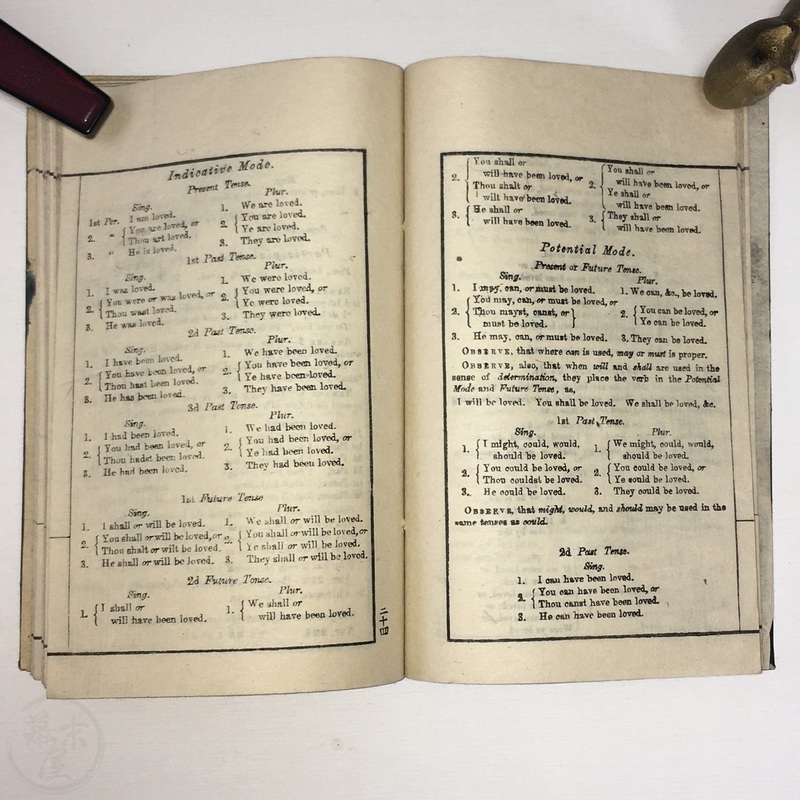 Indicative Mode.
Present Tense.
Sing. Plur.
1st Per. I am loved. 1. We are loved.
2. " { You are loved, or 2. { You are loved, or
Thou art loved. Ye are loved.
3. " He is loved. 3. They are loved.
1st Past Tense.
Sing. Plur.
1. I was loved. 1. We were loved.
2. { You were or was loved, or 2. { You were loved, or
Thou wast loved. Ye were loved.
3. He was loved. 3. They were loved.
2d Past Tense.
Sing. Plur.
1. I have been loved. 1. We have been loved.
2. { You have been loved, or 2. { You have been loved, or
Thou hast been loved. Ye have been loved.
3. He has been loved. 3. They have been loved.
3d Past Tense.
Sing. Plur.
1. I had been loved. 1. We had been loved.
2. { You had been loved, or 2. { You had been loved, or
Thou hadst been loved. Ye had been loved.
3. He had been loved. 3. They had been loved.
1st Future Tense
Sing. Plur.
1. I shall or will be loved. 1. We shall or will be loved.
2. { You shall or will be loved, or 2. { You shall or will be loved, or
Thou shalt or wilt be loved. Ye shall or will be loved.
3. He shall or will be loved. 3. They shall or will be loved.
2d Future Tense.
Sing. Plur.
1. { I shall or 1. { We shall or
will have been loved. will have been loved.
二十四
2. { You shall or 2. { You shall or
will have been loved, or will have been loved, or
Thou shalt or Ye shall or
wilt have been loved. will have been loved.
3. { He shall or 3. { They shall or
will have been loved. will have been loved.
Potential Mode.
Present or Future Tense.
Sing. Plur.
1. I may, can, or must be loved. 1. We can, &c., be loved.
2. { You may, can, or must be loved, or 2. { You can be loved, or
Thou mayst, canst, or } Ye can be loved.
must be loved.
3. He may, can, or must be loved. 3. They can be loved.
OBSERVE, that where can is used, may or must is proper.
OBSERVE, also, that when will and shall are used in the
sense of determination, they place the verb in the Potential
Mode and Future Tense, as,
I will be loved. You shall be loved. We shall be loved, &c.
1st Past Tense.
Sing. Plur.
1. { I might, could, would, 1. { We might, could, would,
should be loved. should be loved.
2. { You could be loved, or 2. { You could be loved, or
Thou couldst be loved. Ye could be loved.
3. He could be loved. 3. They could be loved.
OBSERVE, that might, would, and should may be used in the
same tenses as could.
2d Past Tense.
Sing.
1. I can have been loved.
2. { You can have been loved, or
Thou canst have been loved.
3. He can have been loved.
幕末屋